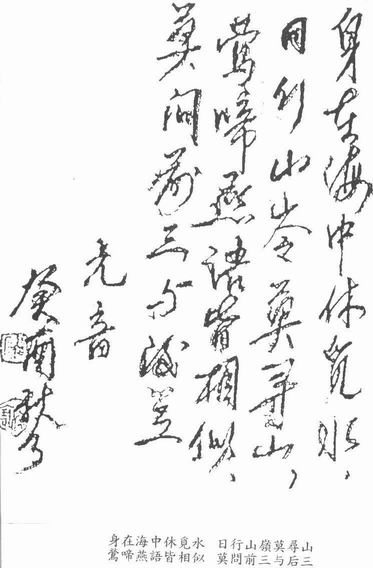 身在海中休覓水,
日行山岭莫尋山,
鶯啼燕語皆相似,
莫問前三与後三
光音
癸酉秋
身在海中休覓水 日行山嶺莫尋山
鶯啼燕語皆相似 莫問前三与后三